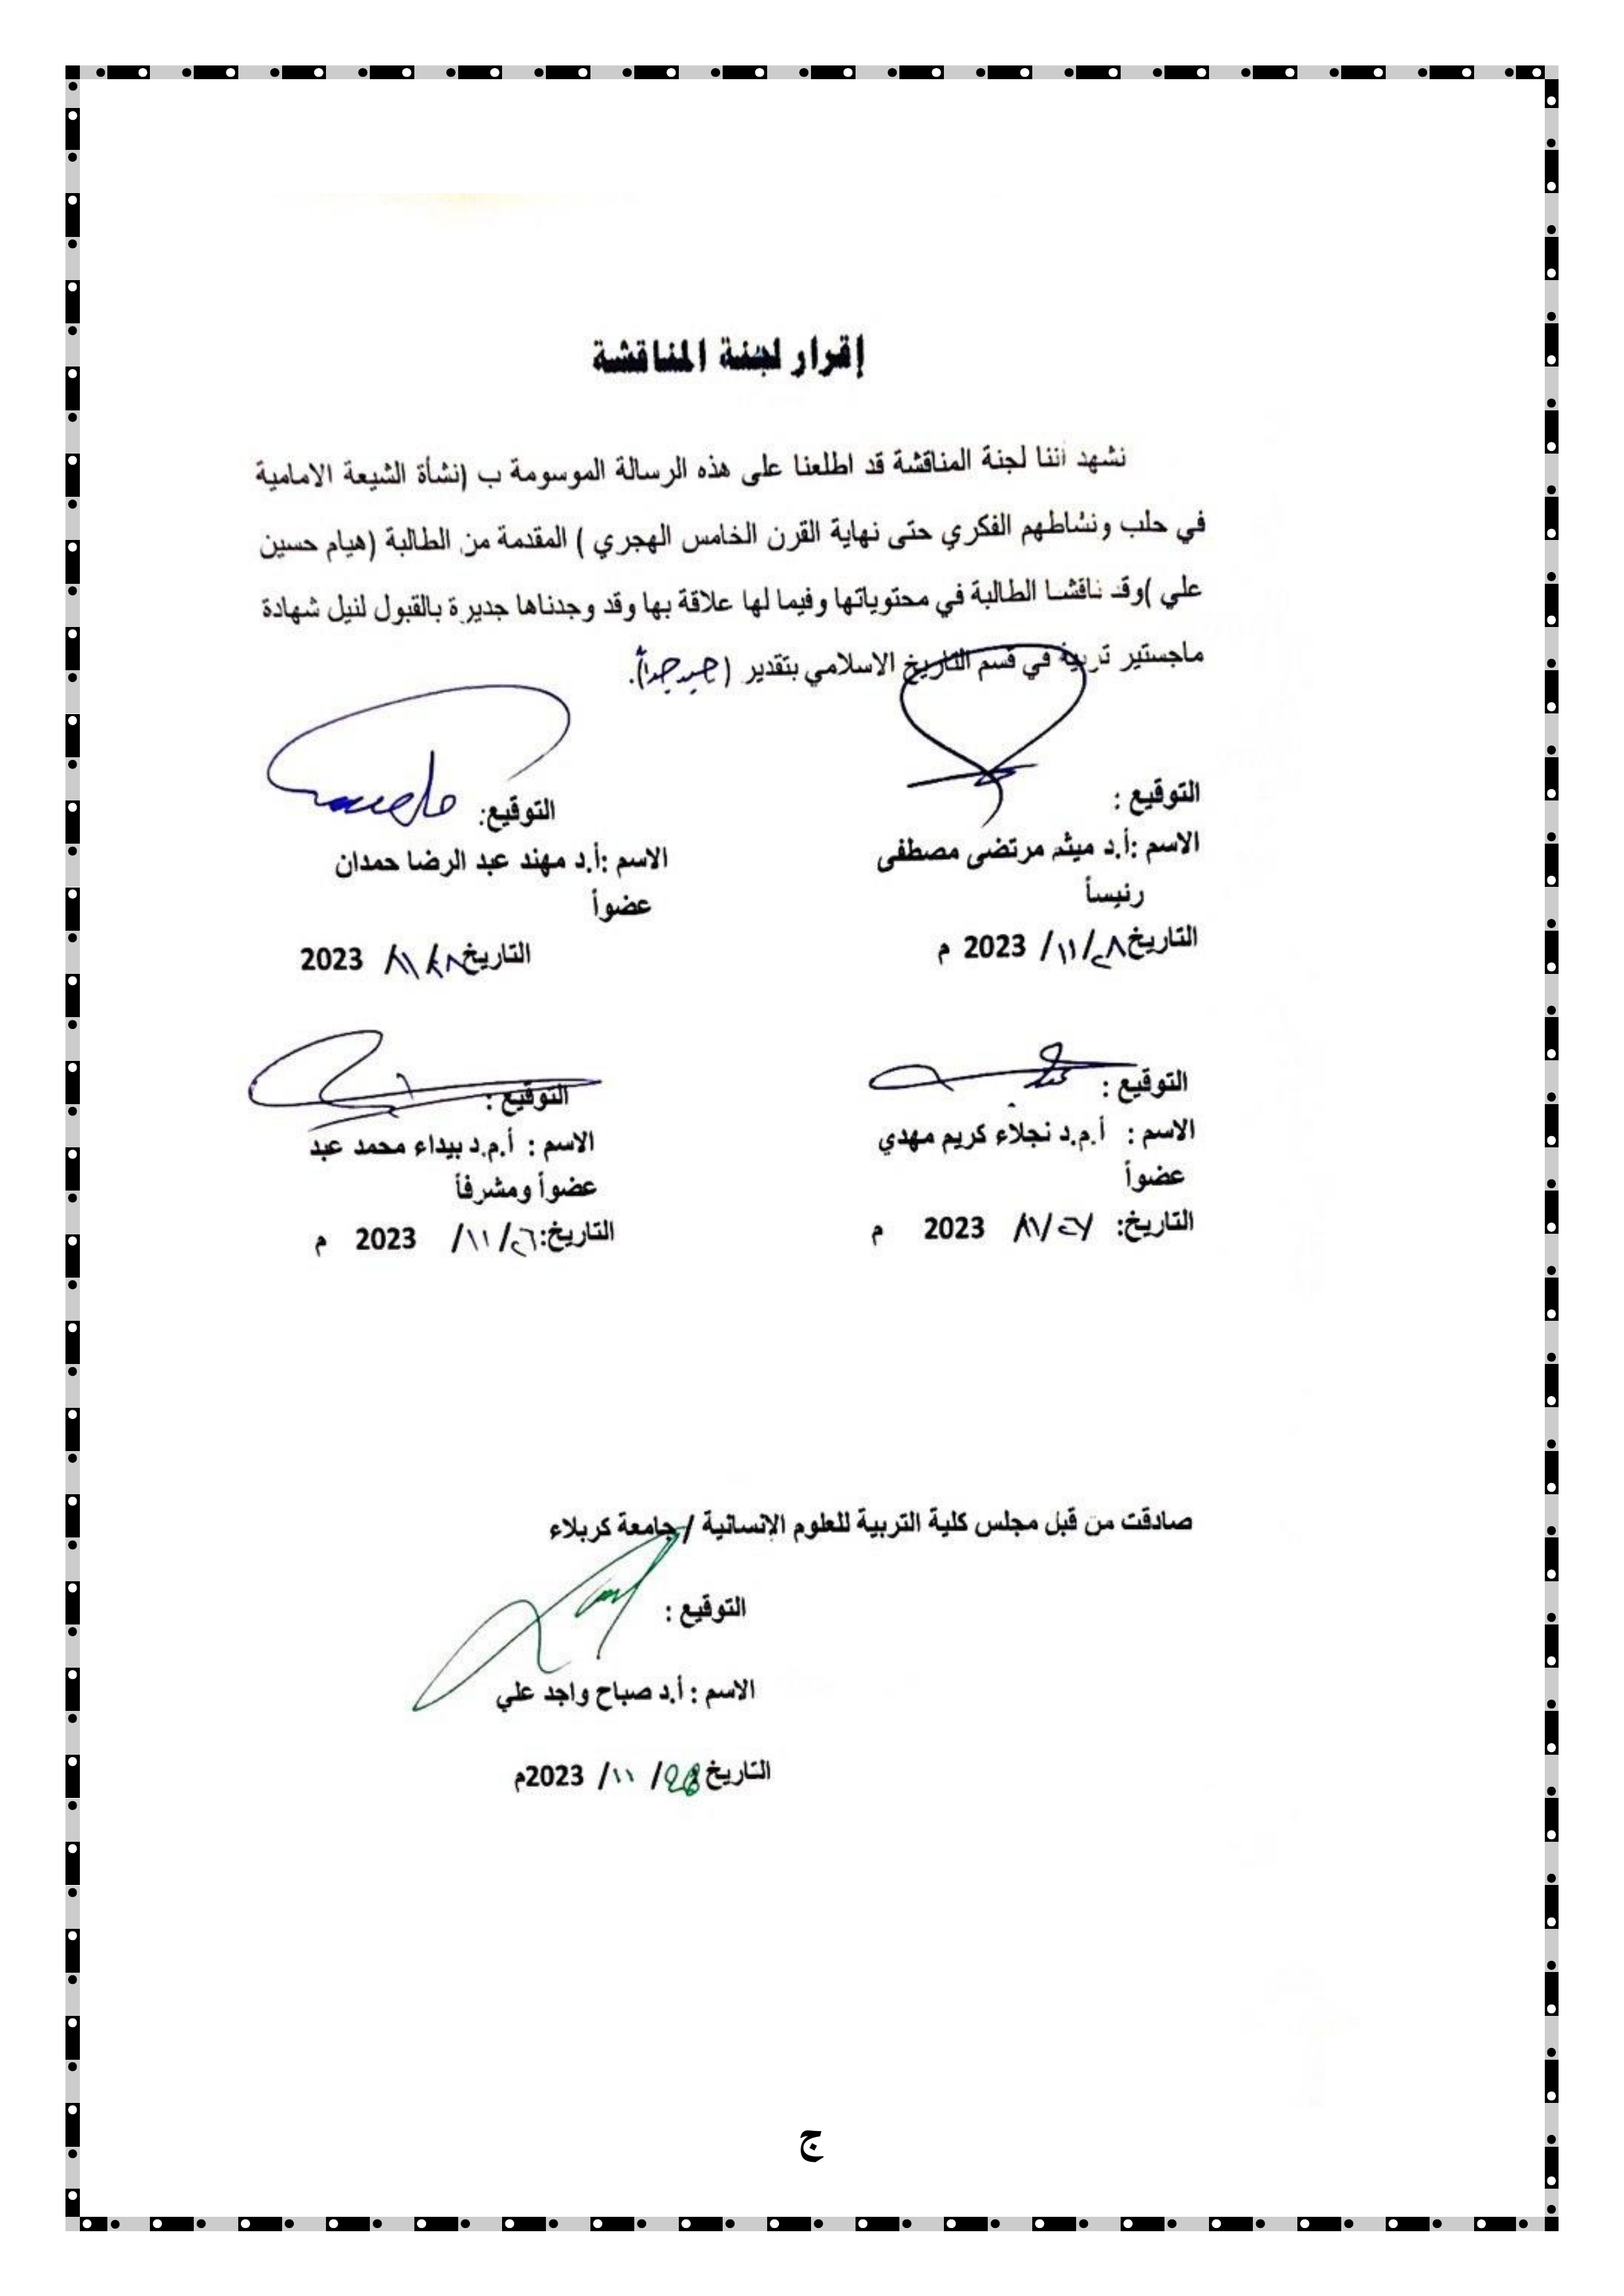 إقرار لجنة المناقشة
نشهد أننا لجنة المناقشة قد اطلعنا على هذه الرسالة الموسومة ب (نشأة الشيعة الامامية
في حلب ونشاطهم الفكري حتى نهاية القرن الخامس الهجري ) المقدمة من الطالبة (هيام حسين
علي )وقد ناقشنا الطالبة في محتوياتها وفيما لها علاقة بها وقد وجدناها جديرة بالقبول لنيل شهادة
ماجستير تربية في قسم التاريخ الاسلامي بتقدير (جيد جداً).
التوقيع :
الاسم :أ.د ميثم مرتضى مصطفى
رئيساً
التاريخ ٢٨/ ١١/ 2023 م
التوقيع:
الاسم :أ.د مهند عبد الرضا حمدان
عضواً
التاريخ ٢٨/ ١١/ 2023
التوقيع :
الاسم : أ.م.د نجلاء كريم مهدي
عضواً
التاريخ: ٢٧/ ١١/ 2023 م
التوقيع :
الاسم : أ.م.د بيداء محمد عبد
عضواً ومشرفاً
التاريخ:٢٦/ ١١/ 2023 م
صادقت من قبل مجلس كلية التربية للعلوم الإنسانية / جامعة كربلاء
التوقيع :
الاسم : أ.د صباح واجد علي
التاريخ / ١١/ 2023م
ج